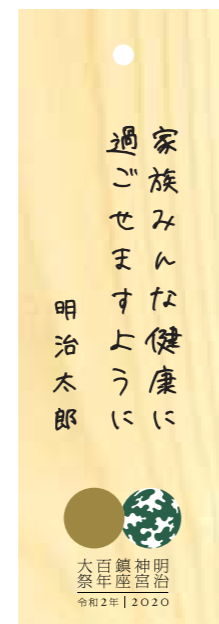 家族みんな健康に
過ごせますように
明治太郎
明治
神宮
鎮座
百年
大祭
令和2年 | 2020